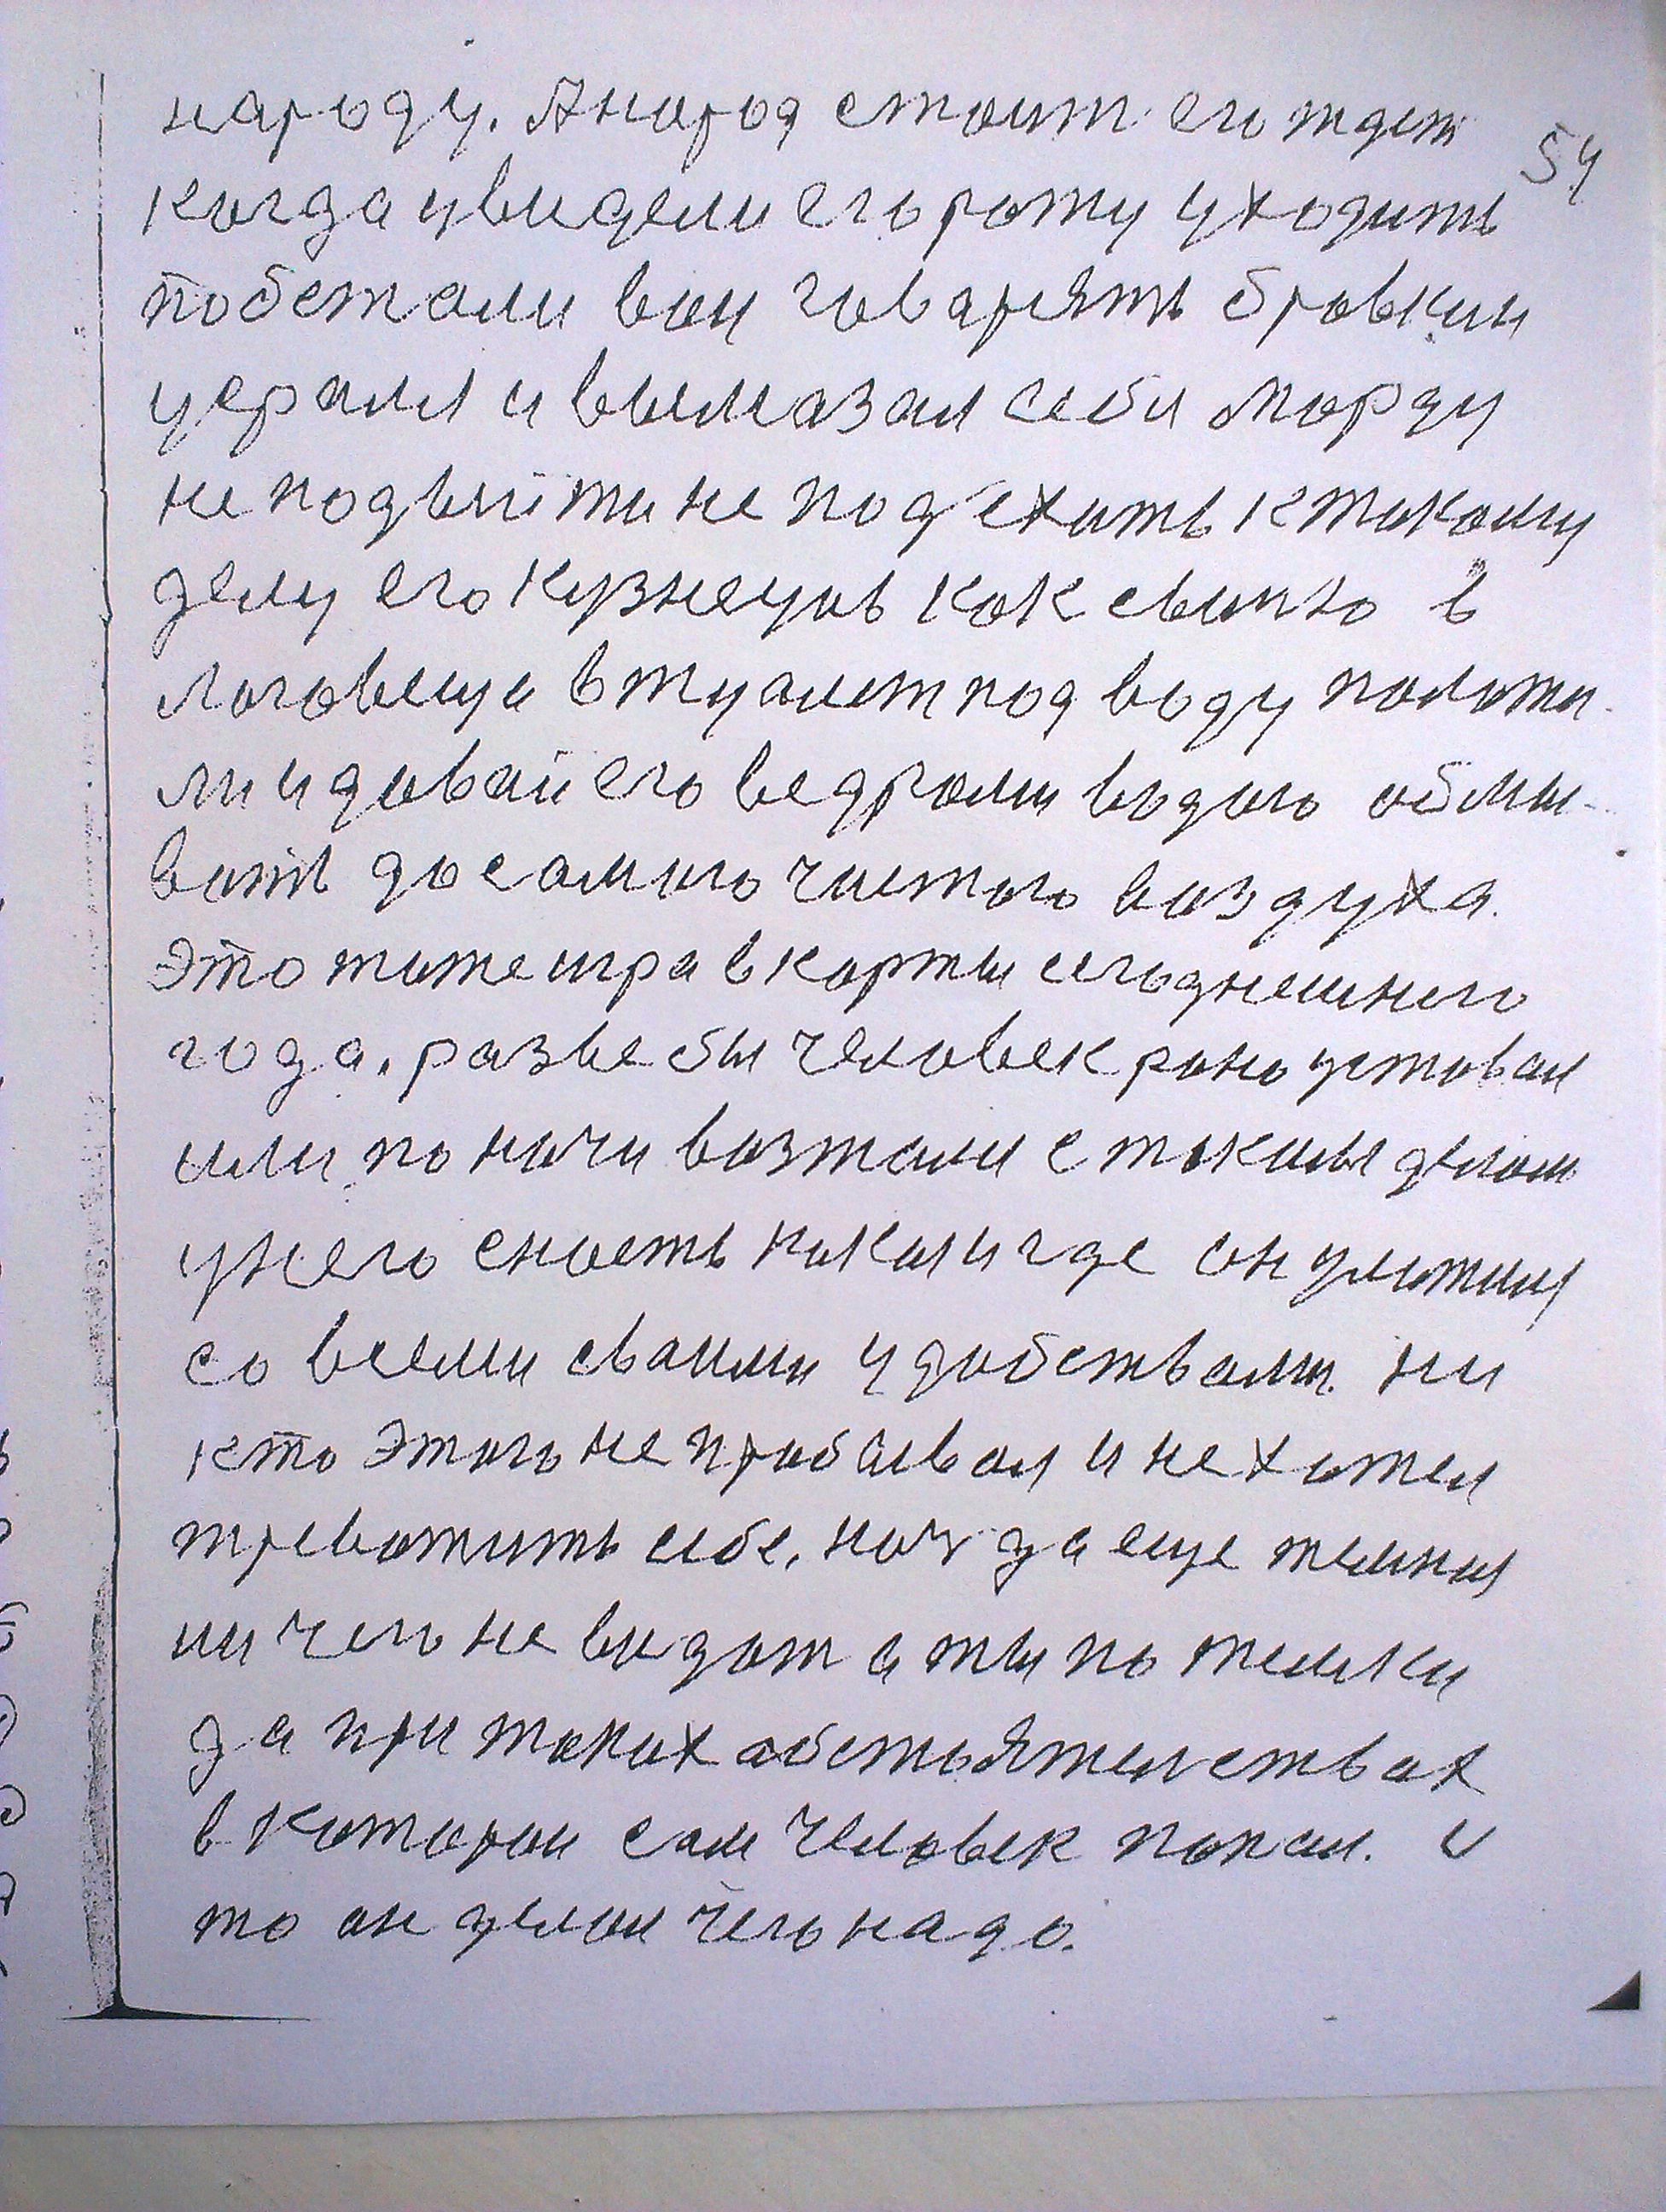 народу. А народ стоит его ждет
54
когда увидели его рожу уходить
побежали вон говарять бровкин
усрался и вымазал себи морду
не подыйти не подехать к такому
делу его Кузнецов как свинью в
логовеща в туалет под воду полажи-
ли и давай его ведрами водою обмы-
вать до самого чистого воздуха.
Это тоже игра в карты сегоднешнего
года. разве бы человек рано уставал
или по ночи возтали с таким делом
у него снасть никали где он
со всеми своими удобствами. ни
кто этого не пробывал и не хотел
тревожить себе, ноч да еще темная
ни чего не видат а ты по темки
да при таких обстоятелствах
в которои сам человек попал. и
то он делал чего надо.